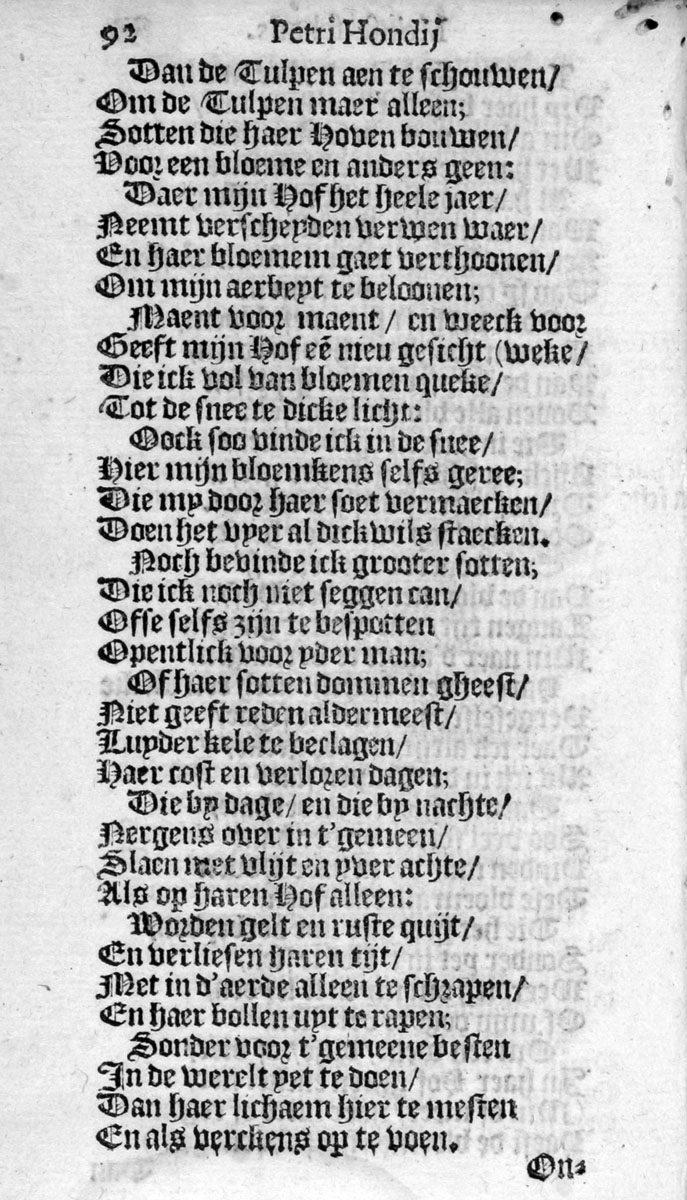 92 Petri Hondij
Dan de Tulpen aen te schouwen/
Om de Tulpen maer alleen;
Sotten die haer Hoven bouwen/
Voor een bloeme en anders geen:
Daer mijn Hof het heele jaer/
Neemt verscheyden verwen waer/
En haer bloemem gaet verthoonen/
Om mijn aerbeyt te beloonen;
Maent voor maent/ en weeck voor
Geeft mijn Hof eē nieu gesicht (weke/
Die ick vol van bloemen queke/
Tot de snee te dicke licht:
Oock soo vinde ick in de snee/
Hier mijn bloemkens selfs geree;
Die my door haer soet vermaecken/
Doen het vyer al dickwils staecken.
Noch bevinde ick grooter sotten;
Die ick noch niet seggen can/
Ofse selfs zijn te bespotten
Opentlick voor yder man;
Of haer sotten dommen gheest/
Niet geeft reden aldermeest/
Luyder kele te beclagen/
Haer cost en verloren dagen;
Die by dage/ en die by nachte/
Nergens over in t'gemeen/
Slaen met vlijt en yver achte/
Als op haren Hof alleen:
Worden gelt en ruste quijt/
En verliesen haren tijt/
Met in d'aerde alleen te schrapen/
En haer bollen uyt te rapen;
Sonder voor t'gemeene besten
In de werelt yet te doen/
Dan haer lichaem hier te mesten
En als verckens op te voen.
On-